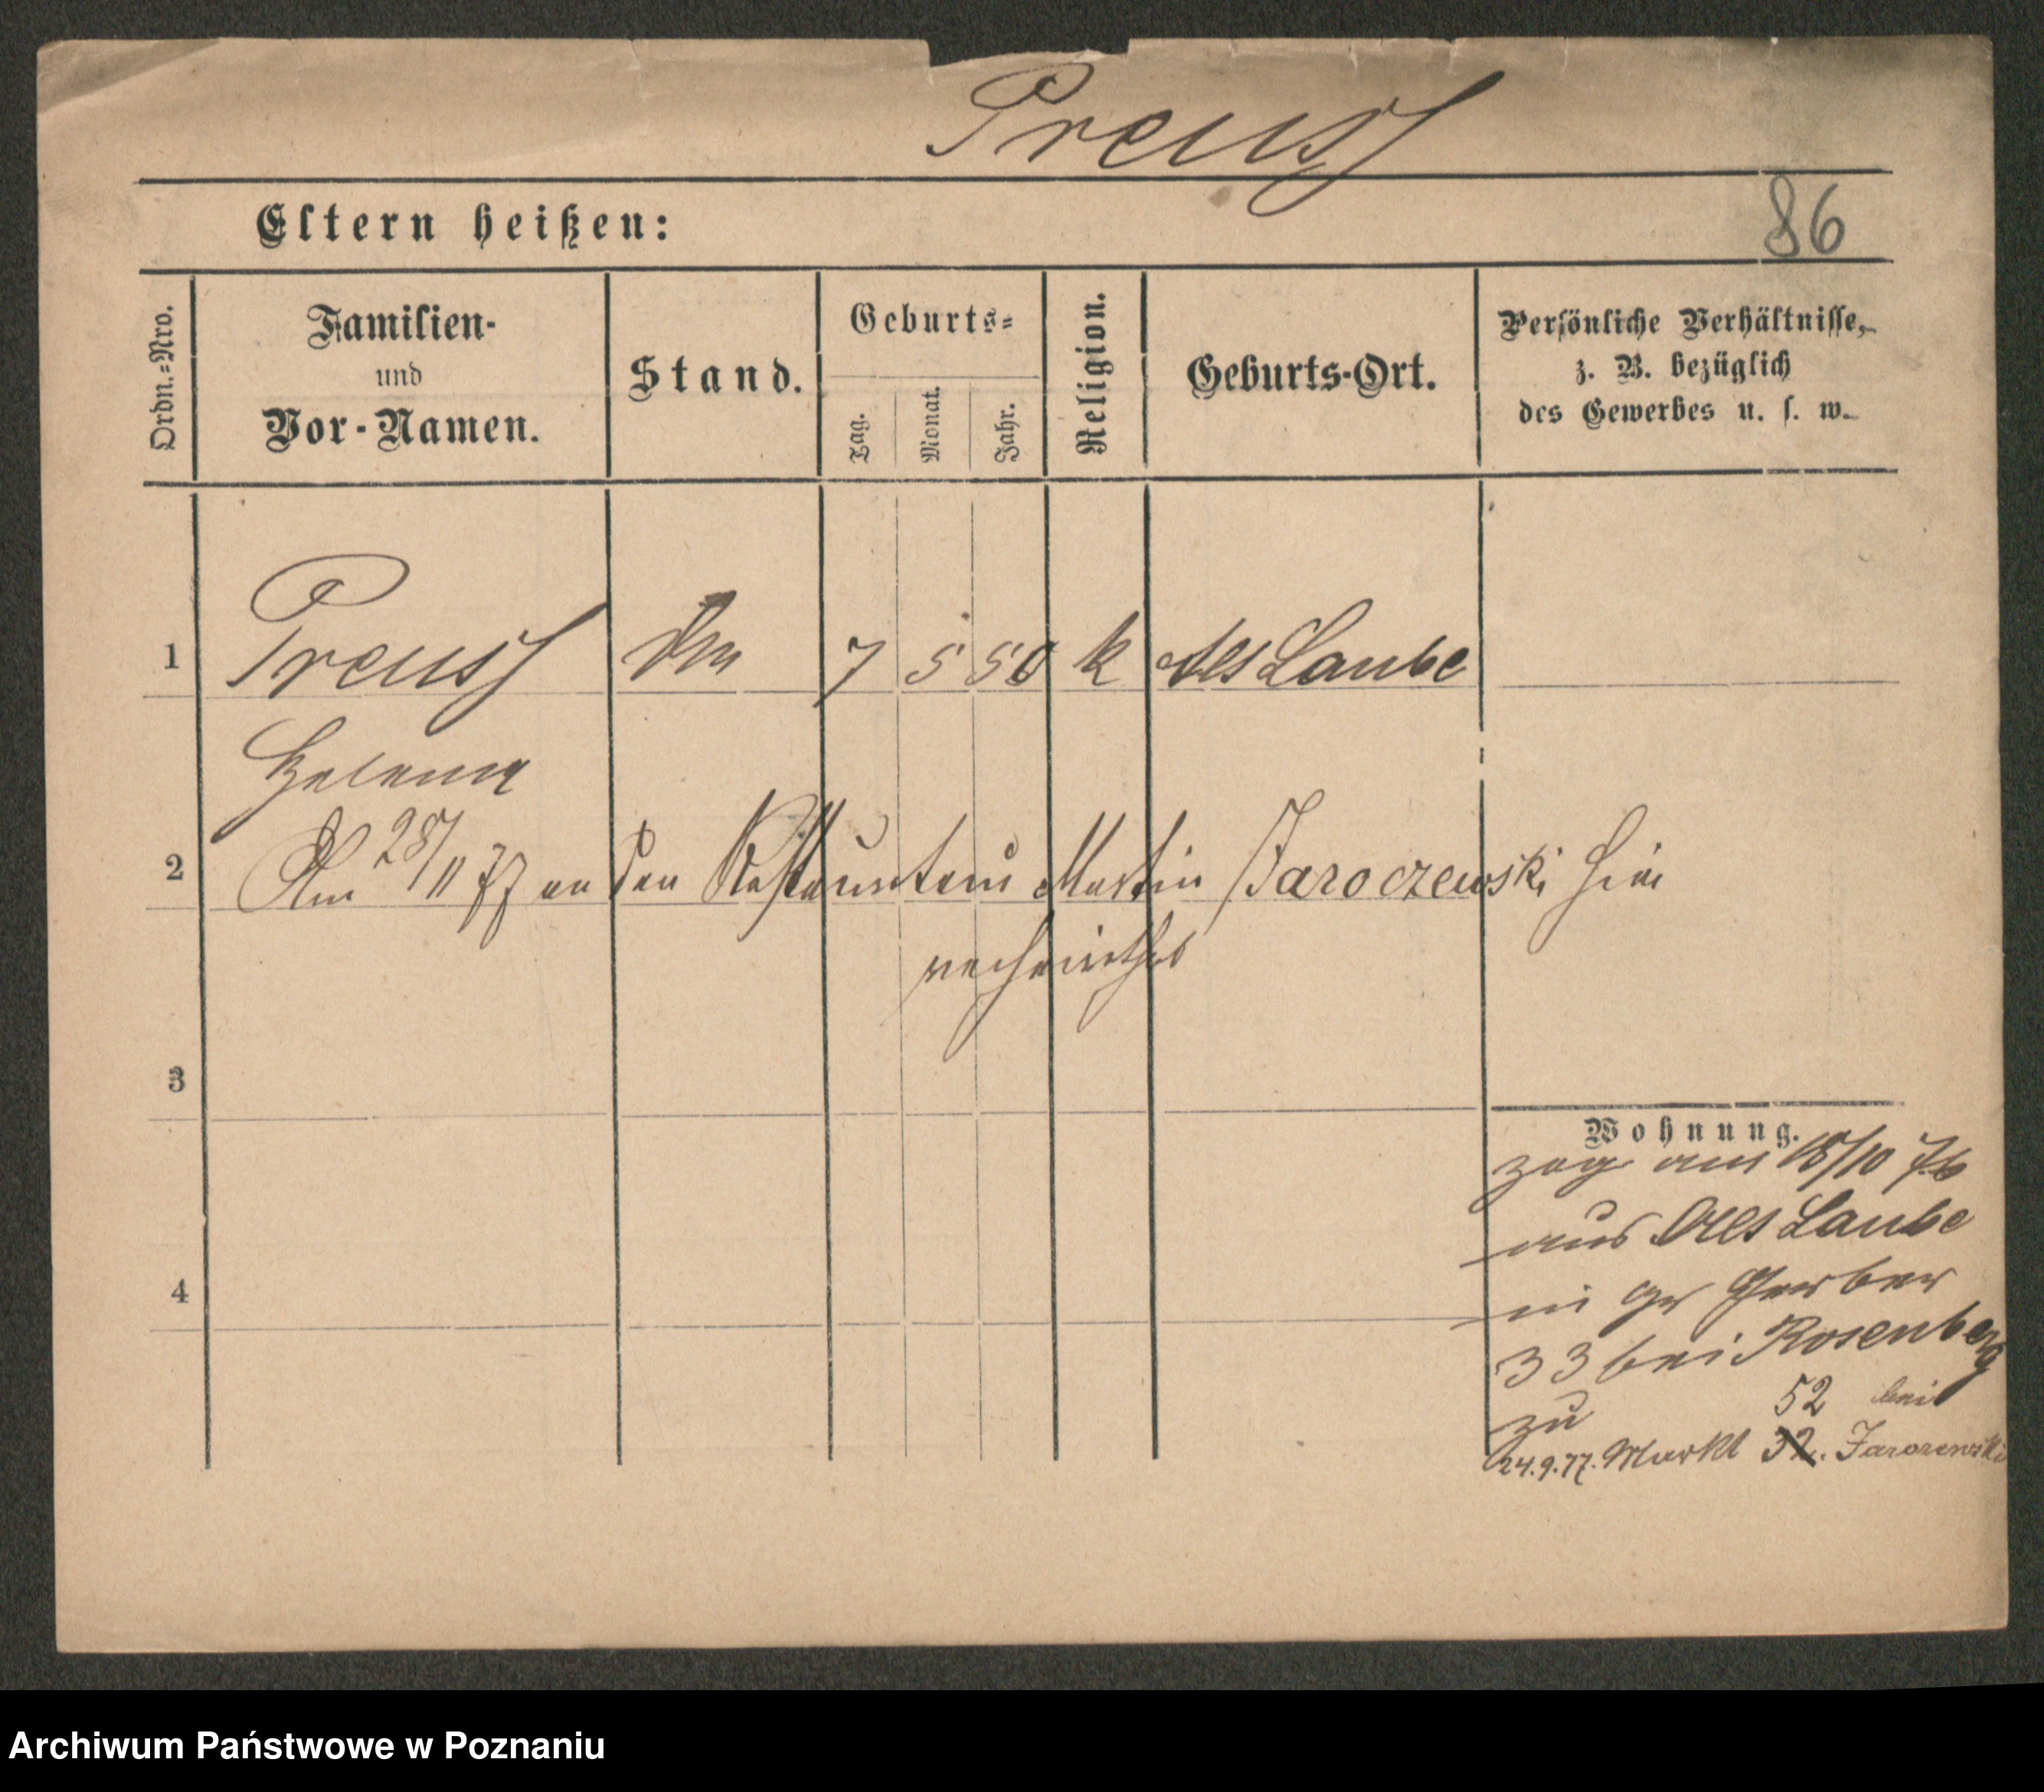 Preuss
Eltern heißen:
86
Ordn.-Nro.
Familien-
und
Vor-Namen.
Stand.
Geburts-
Tag.
Monat.
Jahr.
Religion.
Geburts-Ort.
Persönliche Verhältnisse,
z. B. bezüglich
des Gewerbes u. s. w.
1 Preuss 7 5 50 k Alt Laube
Helena
2 Am 28/11 77 an den Restaurateur Martin Jaroczewski hier
verheirathet
3
Wohnung.
zog am 18/10 76
aus Alt Laube
4
in Gr Gerber
33 bei Rosenberg
zu 52 bei
24.9.77. Markt 32. Jaroczewski
Archiwum Państwowe w Poznaniu